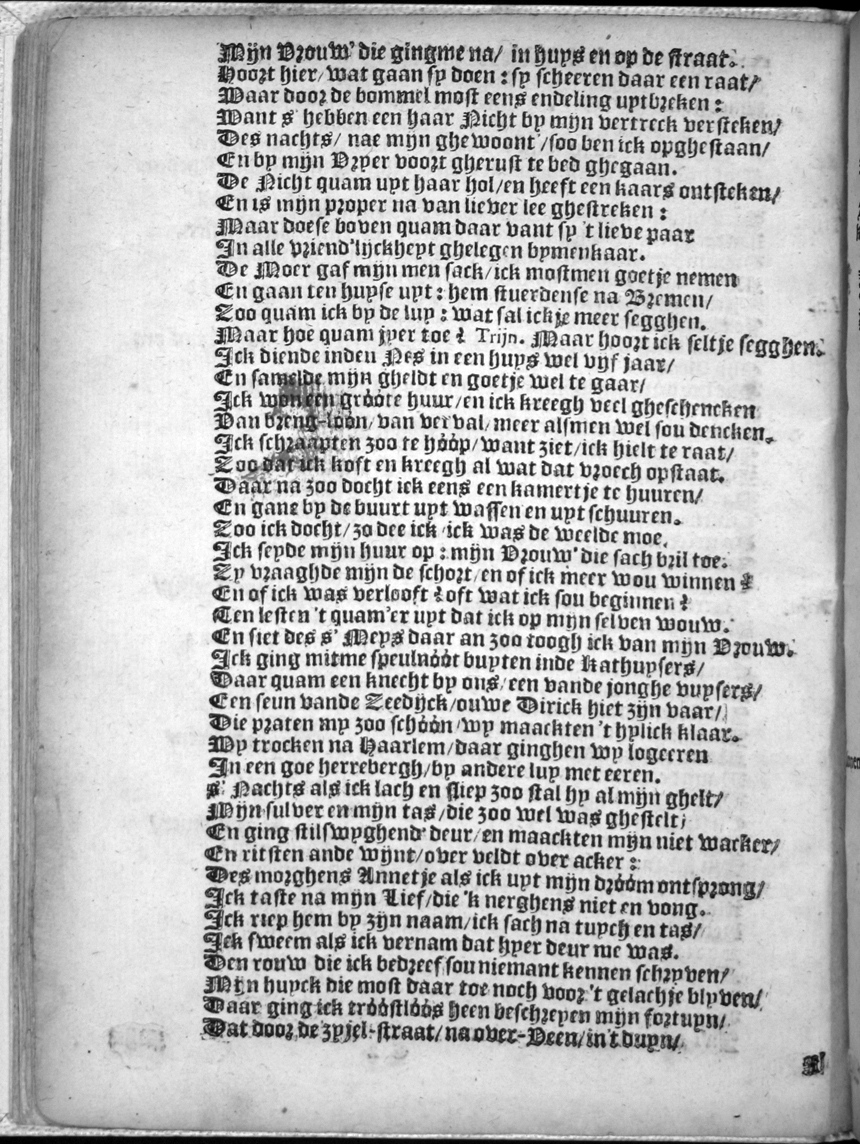 Mijn Vrouw' die gingme na/ in huys en op de straat.
Hoort hier/ wat gaan sy doen: sy scheeren daar een raat/
Maar door de bommel most eens endeling uytbreken:
Want s' hebben een haar Nicht by mijn vertreck versteken/
Des nachts/ nae mijn ghewoont'/ soo ben ick opghestaan/
En by mijn Vryer voort gherust te bed ghegaan.
De Nicht quam uyt haar hol/ en heeft een kaars ontsteken/
En is mijn proper na van liever lee ghestreken:
Maar doese boven quam daar vant sy 't lieve paar
In alle vriend'lijckheyt ghelegen bymenkaar.
De Moer gaf mijn men sack/ ick mostmen goetje nemen
En gaan ten huyse uyt: hem stuerdense na Bremen/
Zoo quam ick by de luy: wat sal ickje meer segghen.
Maar hoe quam jyer toe? Trijn. Maar hoort ick seltje segghen.
Ick diende inden Nes in een huys wel vijf jaar/
En samelde mijn gheldt en goetje wel te gaar/
Ick won een gróóte huur/ en ick kreegh veel gheschencken
Van breng-lóón/ van verval/ meer alsmen wel sou dencken.
Ick schraapten zoo te hóóp/ want ziet/ ick hielt te raat/
Zoo dat ick kost en kreegh al wat dat vroech opstaat.
Daar na zoo docht ick eens een kamertje te huuren/
En gane by de buurt uyt wassen en uyt schuuren.
Zoo ick docht/ zo dee ick/ ick was de weelde moe.
Ick seyde mijn huur op: mijn Vrouw' die sach bril toe.
Zy vraaghde mijn de schort/ en of ick meer wou winnen?
En of ick was verlooft? oft wat ick sou beginnen?
Ten lesten 't quam'er uyt dat ick op mijn selven wouw.
En siet des s' Meys daar an zoo toogh ick van mijn Vrouw.
Ick ging mitme speulnóót buyten inde Kathuysers/
Daar quam een knecht by ons/ een vande jonghe vuysers/
Een seun vande Zeedijck/ ouwe Dirick hiet zijn vaar/
Die praten my zoo schóón/ wy maackten 't hylick klaar.
Wy trocken na Haarlem/ daar ginghen wy logeeren
In een goe herrebergh/ by andere luy met eeren.
s' Nachts als ick lach en sliep zoo stal hy al mijn ghelt/
Mijn sulver en mijn tas/ die zoo wel was ghestelt;
En ging stilswyghend' deur/ en maackten mijn niet wacker/
En ritsten ande wynt/ over veldt over acker:
Des morghens Annetje als ick uyt mijn dróóm ontsprong/
Ick taste na mijn Lief/ die 'k nerghens niet en vong.
Ick riep hem by zijn naam/ ick sach na tuych en tas/
Ick sweem als ick vernam dat hyer deur me was.
Den rouw die ick bedreef sou niemant kennen schryven/
Mijn huyck die most daar toe noch voor 't gelachje blyven/
Daar ging ick tróóstlóós heen beschreyen mijn fortuyn/
Dat door de zyjel-straat/ na over-Veen/ in 't duyn/